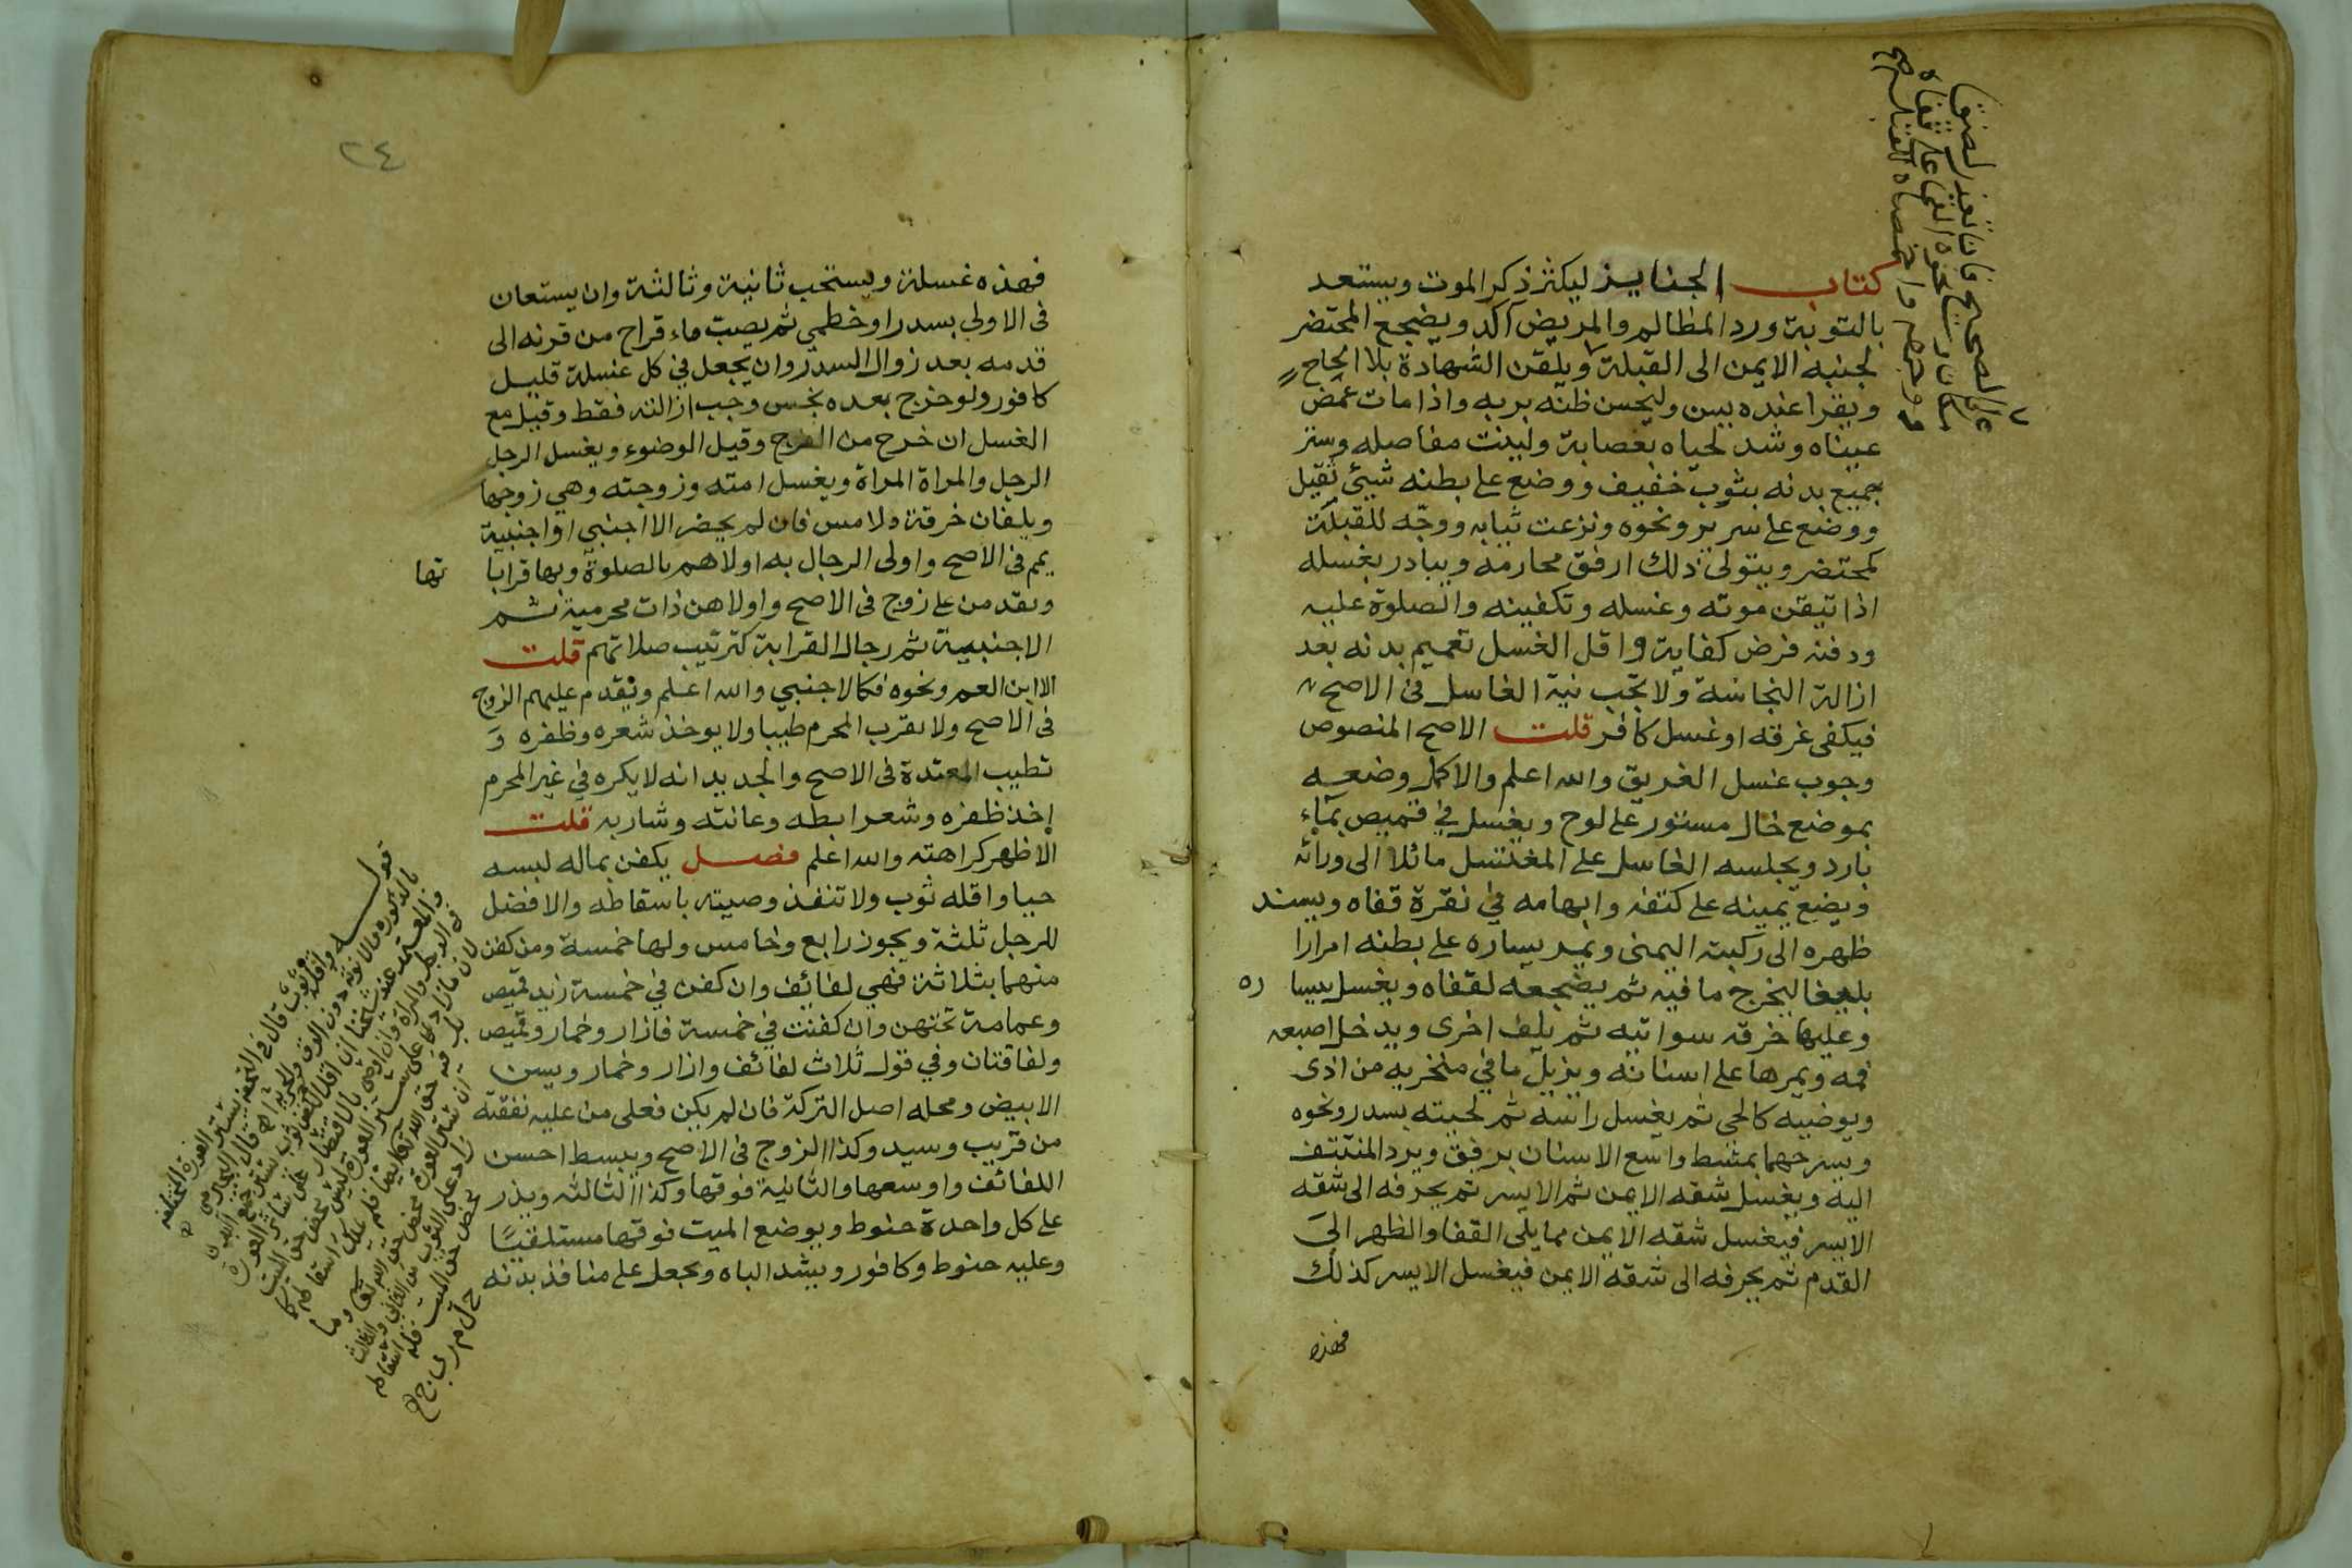 كتاب الجنايز ليكثر ذكر الموت ويستعد
بالتوبة ورد المظالم والمريض آكد ويضجع المحتضر
لجنبه الايمن الى القبلة ويلقن الشهادة بلا الحاح
ويقرا عنده يس وليحسن ظنه بربه واذا مات غمض
عيناه وشد لحياه بعصابة ولينت مفاصله وستر
جميع بدنه بثوب خفيف ووضع على بطنه شيئ ثقيل
ووضع على سرير ونحوه ونزعت ثيابه ووجّه للقبلة
كمحتضر ويتولى ذلك ارفق محارمه ويبادر بغسله
اذا تيقن موته وغسله وتكفينه والصلوة عليه
ودفنه فرض كفاية واقل الغسل تعميم بدنه بعد
ازالة النجاسة ولا تجب نية الغاسل فى الاصح
فيكفى غرقه او غسل كافر قلت الاصح المنصوص
وجوب غسل الغريق والله اعلم والاكمل وضعه
بموضع خال مستور على لوح ويغسل في قميص بماء
بارد ويجلسه الغاسل على المغتسل مائلا الى ورائه
ويضع يمينه على كتفه وابهامه في نقرة قفاه ويسند
ظهره الى ركبته اليمنى ويمد يساره على بطنه امرارا
بليغا ليخرج ما فيه ثم يضجعه لقفاه ويغسل بيسا ره
وعليها خرقه سواتيه ثم يلف اخرى ويدخل اصبعه
فمه ويمرها على اسنانه ويزيل ما في منخريه من اذى
ويوضيه كالحى ثم يغسل راسه ثم لحيته بسدر ونحوه
ويسرحهما بمشط واسع الاسنان برفق ويرد المنتتف
اليه ويغسل شقه الايمن ثم الايسر ثم يحرفه الى شقه
الايسر فيغسل شقه الايمن مما يلى القفا والظهر الى
القدم ثم يحرفه الى شقه الايمن فيغسل الايسر كذلك
فهذه
على الصحيح فان تعذر لضيق
مكان ونحوه القى على قفاه
ووجهه واخمصاه للقبلة صح
٢٤
فهذه غسلة ويستحب ثانية وثالثة وان يستعان
فى الاولى بسدر او خطمي ثم يصبّ ماء قراح من قرنه الى
قدمه بعد زوال السدر وان يجعل في كل غسلة قليل
كافور ولو خرج بعده نجس وجب ازالته فقط وقيل مع
الغسل ان خرج من الفرج وقيل الوضوء ويغسل الرجل
الرجل والمراة المراة ويغسل امته وزوجته وهي زوجها
ويلفان خرقة ولا مس فان لم يحضر الا اجنبي او اجنبية
يمم فى الاصح واولى الرجال به اولاهم بالصلوة وبها قرابا تها
ويقدمن على زوج فى الاصح واولاهن ذات محرمية ثم
الاجنبية ثم رجال القرابة كترتيب صلاتهم قلت
الا ابن العم ونحوه فكالاجنبي والله اعلم ويقدم عليهم الزوج
فى الاصح ولا يقرب المحرم طيبا ولا يوخذ شعره وظفره وَ
تطيب المعتدة فى الاصح والجديد انه لا يكره في غير المحرم
اخذ ظفره وشعر ابطه وعانته وشاربه قلت
الاظهر كراهته والله اعلم فصل يكفن بماله لبسه
حيا واقله ثوب ولا تنفذ وصيته باسقاطه والافضل
للرجل ثلثة ويجوز رابع وخامس ولها خمسة ومن كفن
منهما بثلاثة فهي لفائف وان كفن في خمسة زيد قميص
وعمامة تحتهن وان كفنت في خمسة فازار وخمار وقميص
ولفافتان وفي قول ثلاث لفائف وازار وخمار ويسن
الابيض ومحله اصل التركة فان لم يكن فعلى من عليه نفقته
من قريب وسيد وكذا الزوج فى الاصح ويبسط احسن
اللفائف واوسعها والثانية فوقها وكذا الثالثه ويذر
على كل واحدة حنوط ويوضع الميت فوقها مستلقيًا
وعليه حنوط وكافور ويشد الياه ويجعل على منافذ بدنه
قوله واقله ثوب قال في التحفة يستر العورة المختلفه